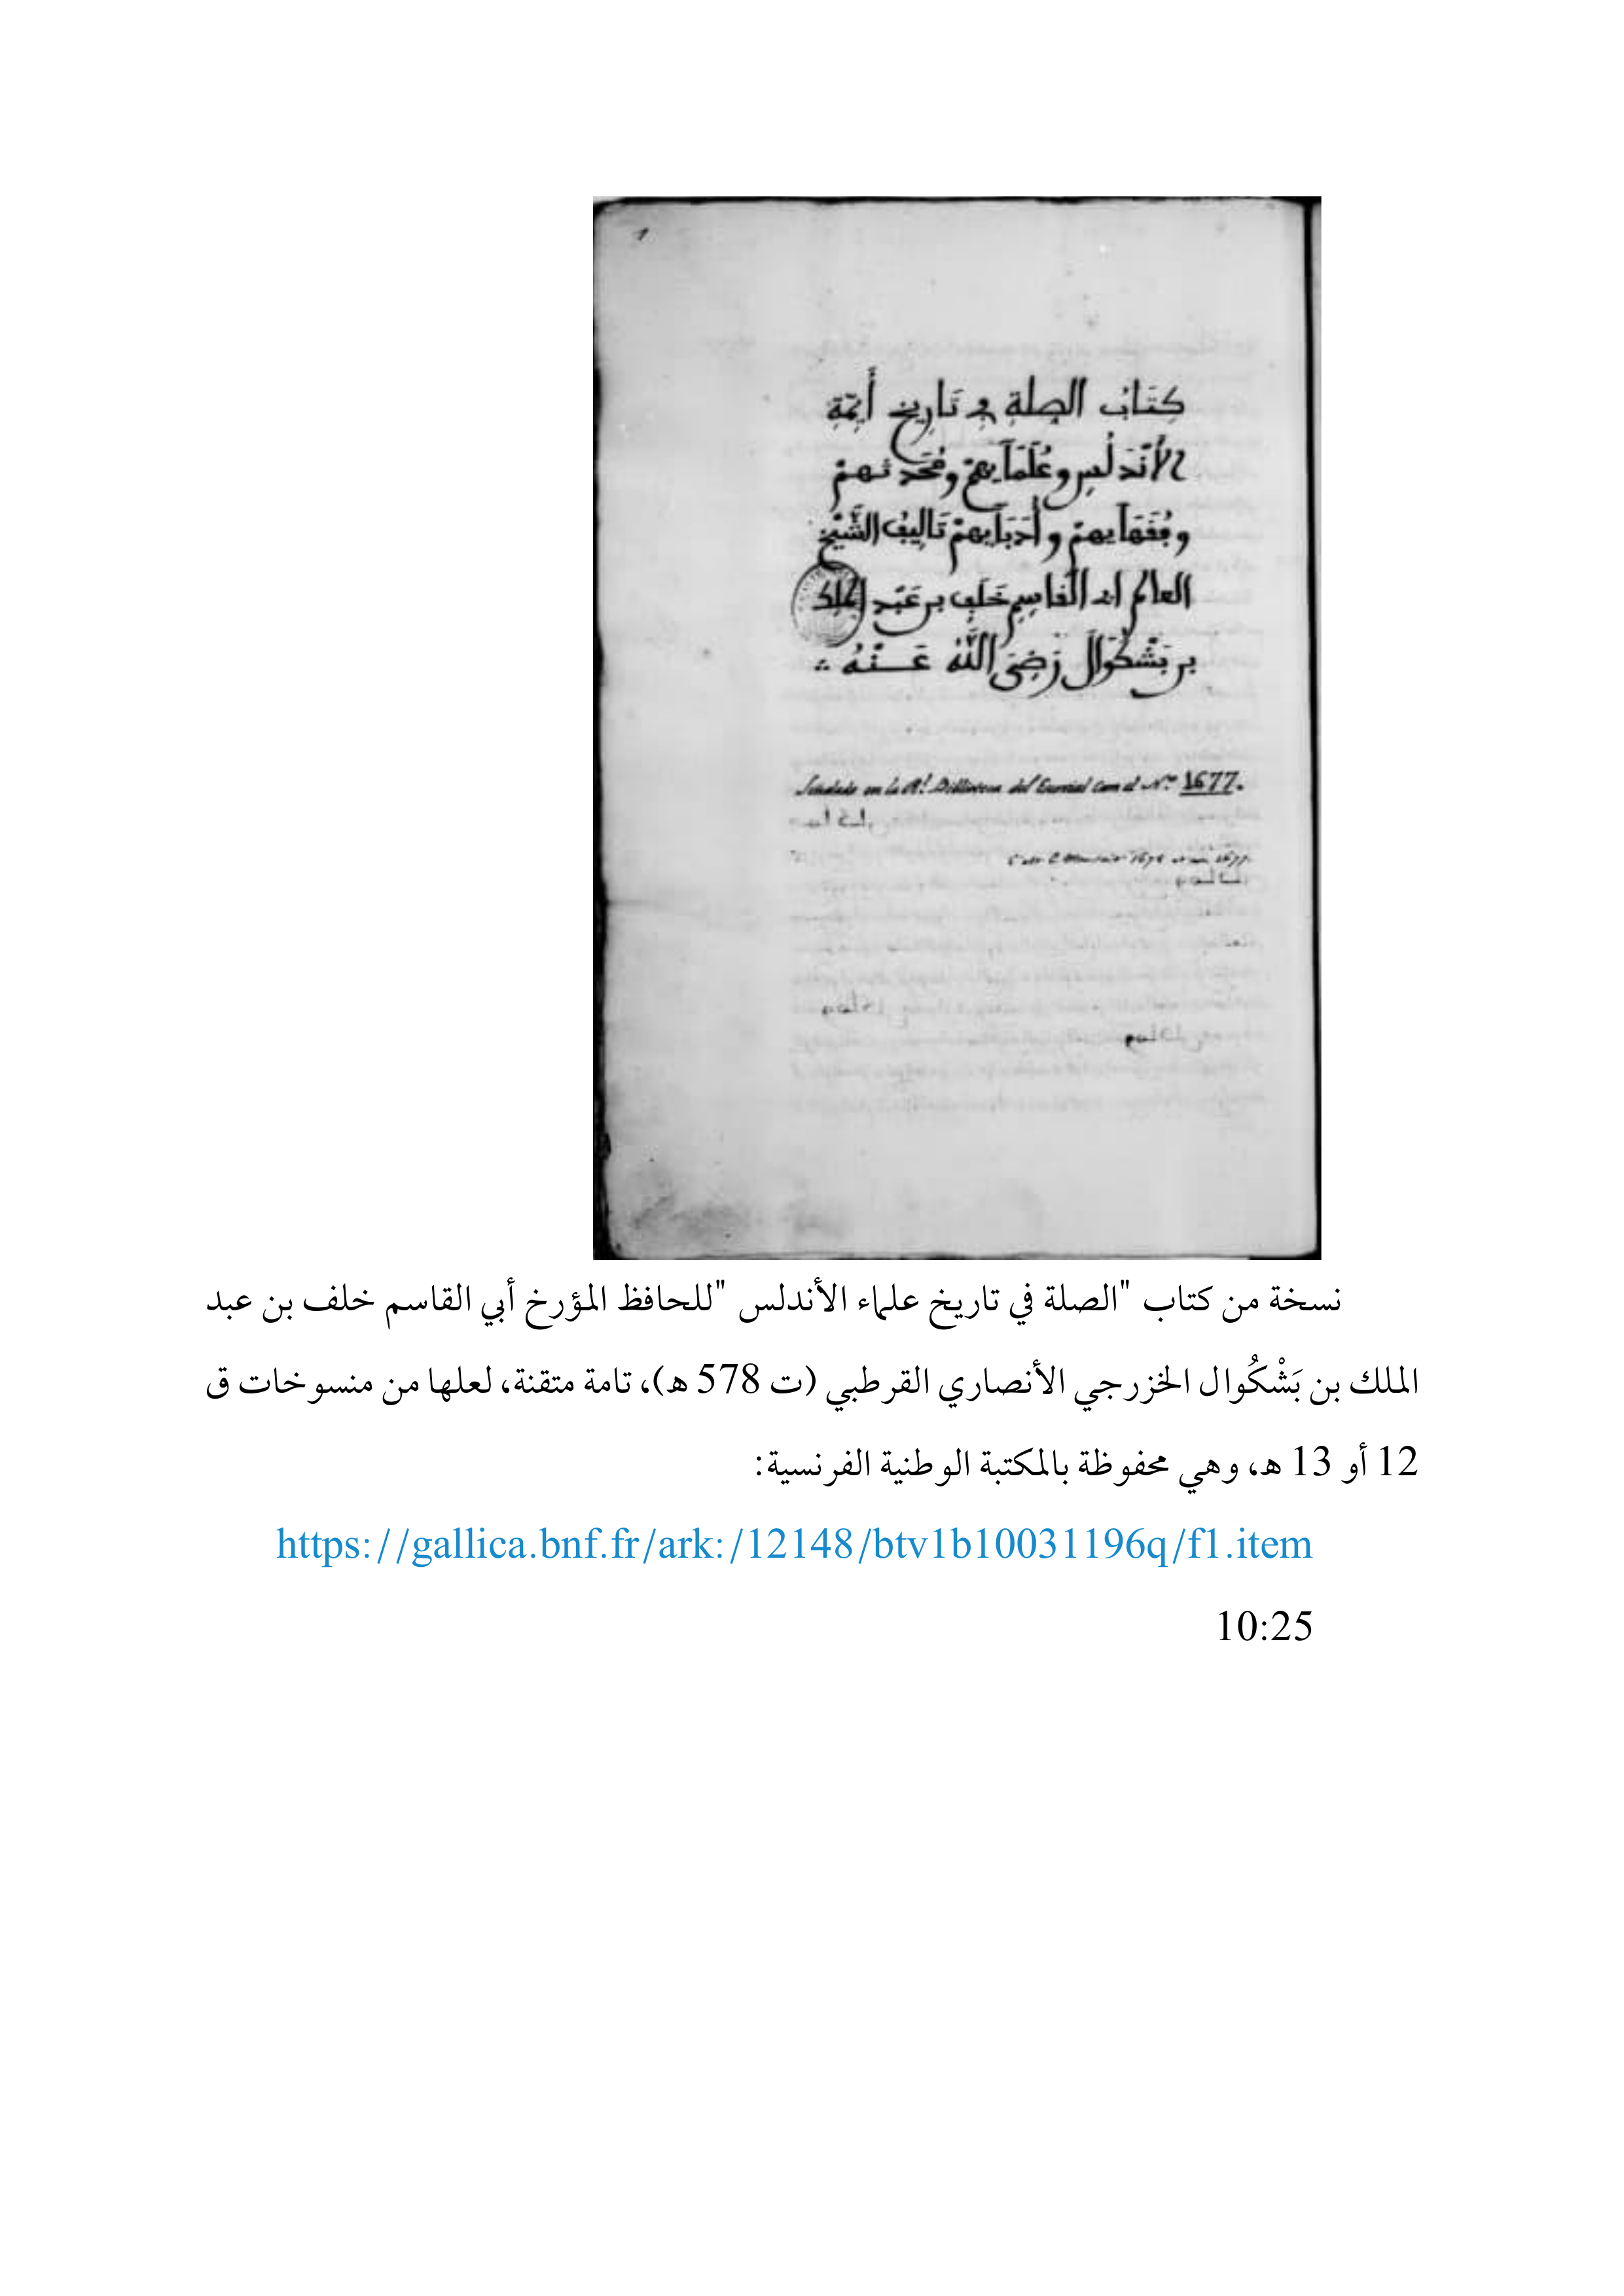 1
كِتَابُ الصِلَةِ فِي تَارِيخِ أَيِمَّةِ
الأَنْدَلُسِ وعُلَمَآيِهِمْ ومُحَدثيهِمْ
وفُقَهَآيِهِمْ وأُدَبَآيِهِمْ تَالِيفُ الشَّيْخِ
العالم ابي القاسِمِ خَلَفِ بن عَبْدِ الملك
بن بَشْكُوَالَ رَضِيَ اللَّهُ عَنْهُ ؞
en la Rl. Biblioteca del Escorial con el No. 1677.
1677
نسخة من كتاب "الصلة في تاريخ علماء الأندلس "للحافظ المؤرخ أبي القاسم خلف بن عبد
الملك بن بَشْكُوال الخزرجي الأنصاري القرطبي (ت 578 ه)، تامة متقنة، لعلها من منسوخات ق
12 أو 13 ه، وهي محفوظة بالمكتبة الوطنية الفرنسية:
https://gallica.bnf.fr/ark:/12148/btv1b10031196q/f1.item
10:25